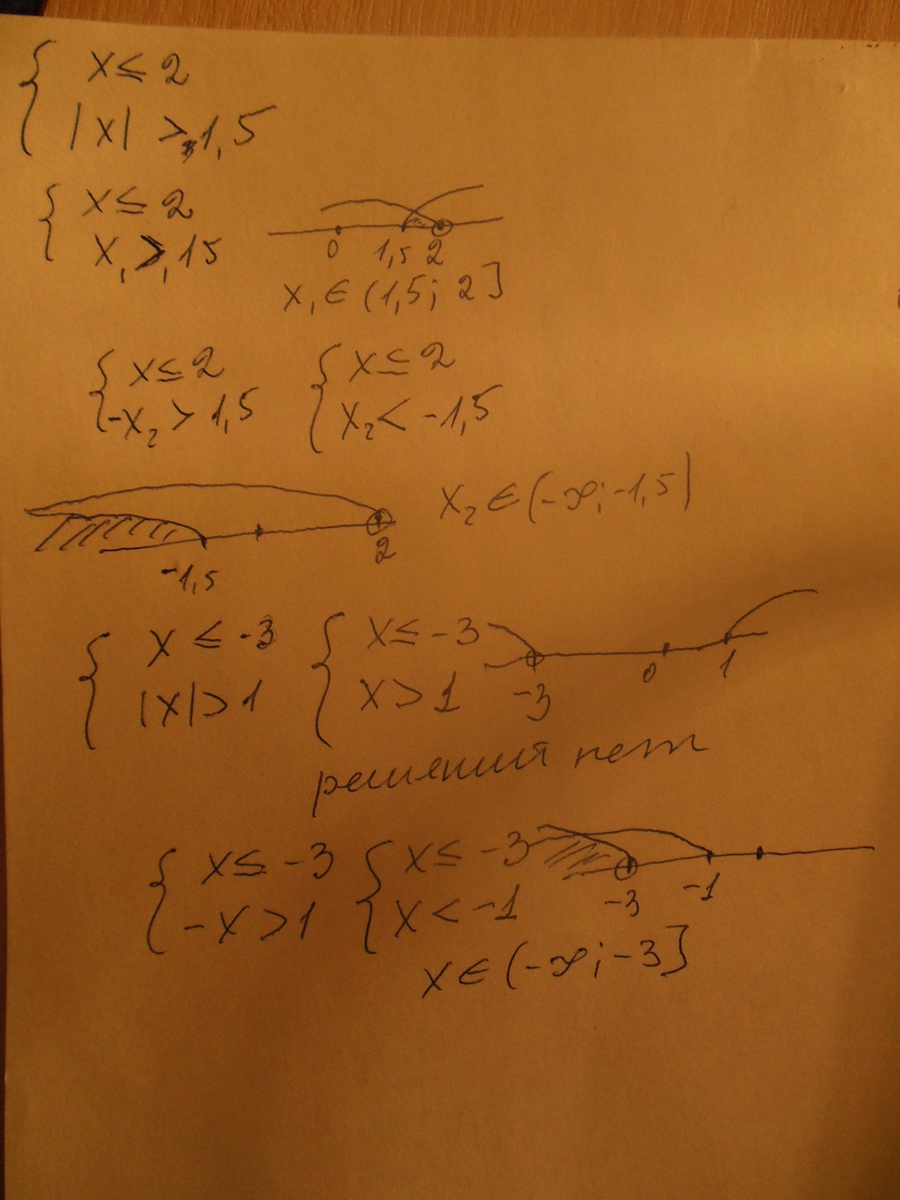 x ≤ 2
|x| > 1,5
x ≤ 2
x₁ > 1,5
0 1,5 2
x₁ ∈ (1,5; 2]
x ≤ 2 x ≤ 2
-x₂ > 1,5 x₂ < -1,5
x₂ ∈ (-∞; -1,5)
-1,5 2
x ≤ -3 x ≤ -3
|x| > 1 x > 1
-3 0 1
решений нет
x ≤ -3 x ≤ -3
-x > 1 x < -1
-3 -1
x ∈ (-∞; -3]